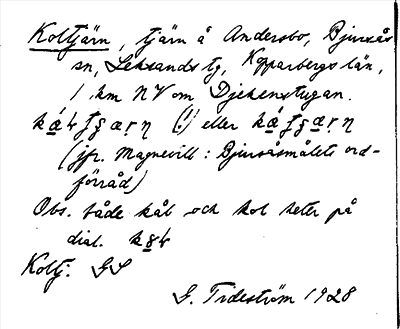 Koltjärn, tjärn å Andersbo, Bjursås
sn, Leksands tg, Kopparbergs län,
1 km NV om Djekenstugan.
(!) eller
(jfr. Magnevill: Bjursåsmålets ord-
förråd)
Obs. både kål och kol heter på
dial.
Koltj. GS
G. Tideström 1928